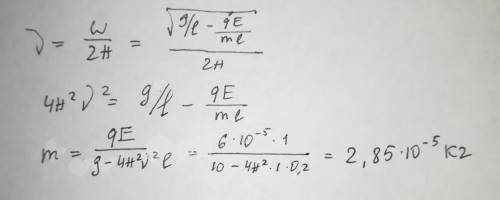 ν = ω / 2π = √(g/l - qE/ml) / 2π
4π² ν² = g/l - qE/ml
m = qE / g - 4π²ν²l = 6·10⁻⁵·1 / 10 - 4π²·1·0,2 = 2,85·10⁻⁵ кг